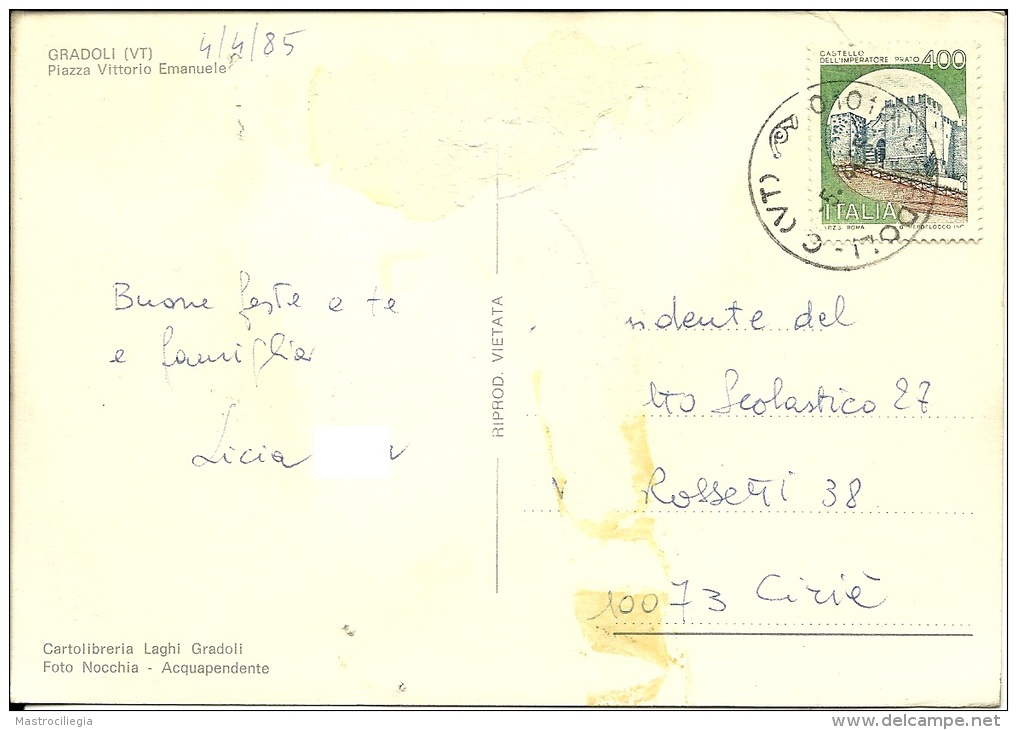 GRADOLI (VT)
Piazza Vittorio Emanuele
4/4/85
CASTELLO
DELL'IMPERATORE PRATO 400
ITALIA
I.P.Z.S. ROMA
(VT)
Buone feste a te
e famiglia
Licia
RIPROD. VIETATA
dente del
Scolastico 27
Rossetti 38
10073 Ciriè
Cartolibreria Laghi Gradoli
Foto Nocchia - Acquapendente
Mastrociliegia
www.delcampe.net